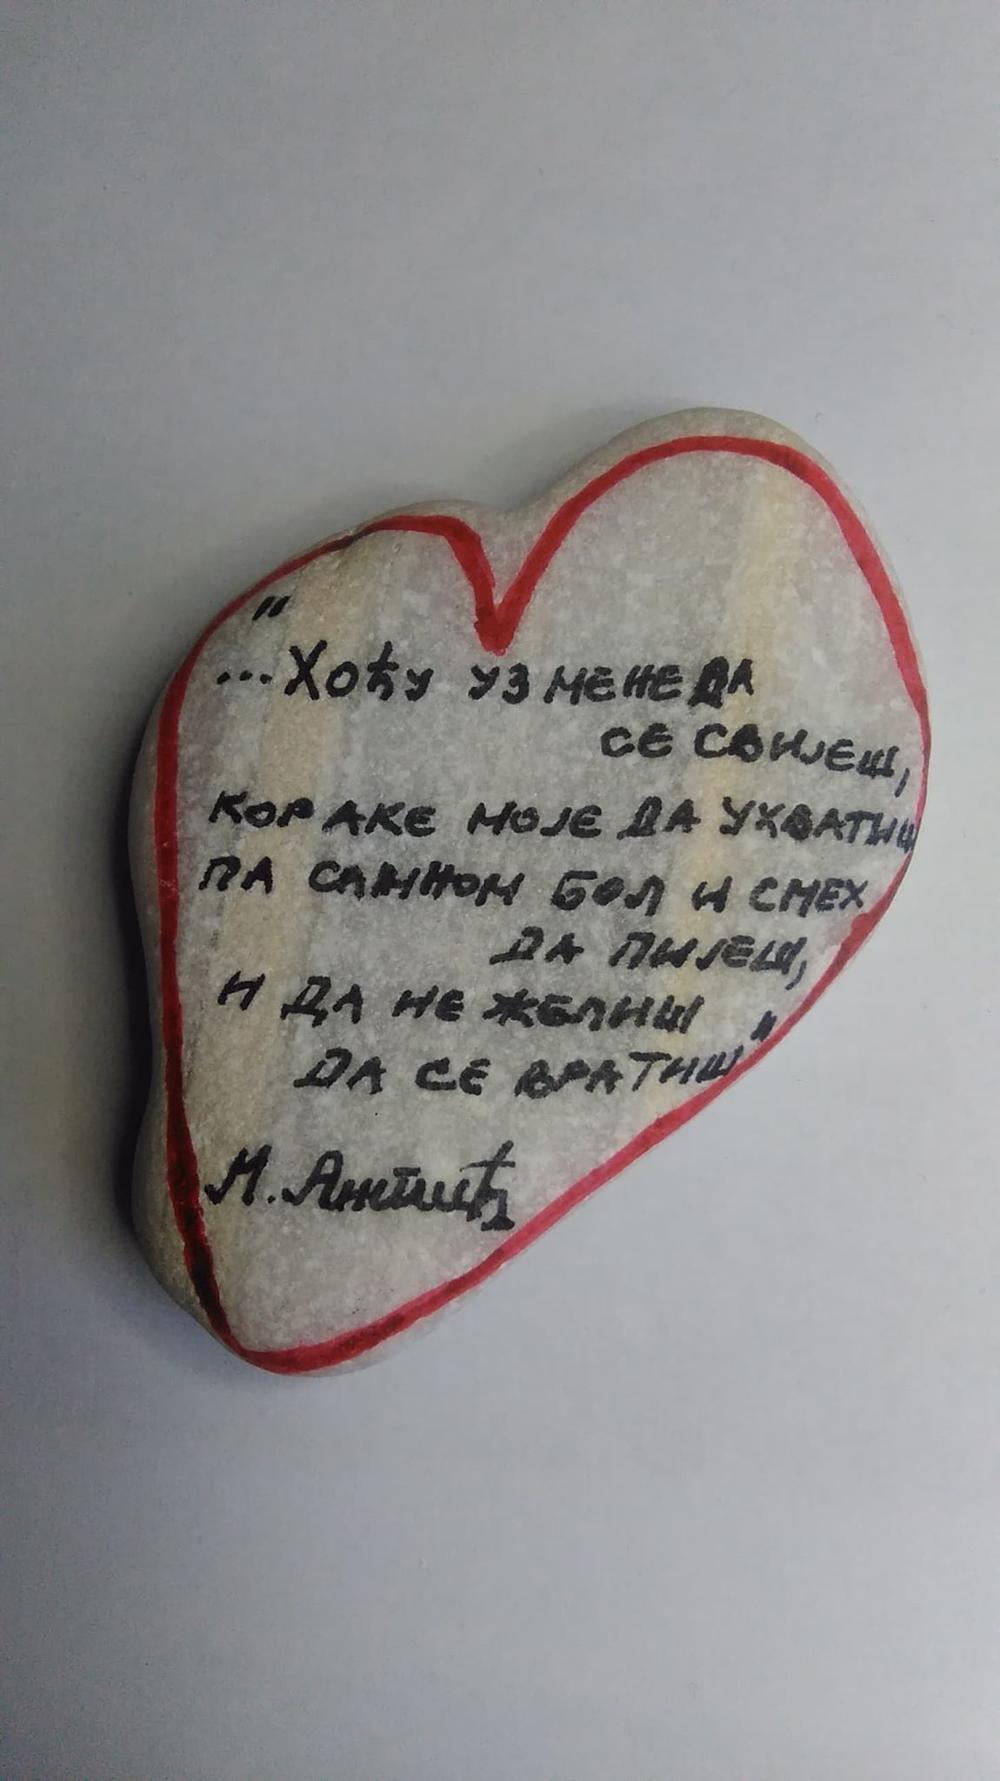 "
...Хоћу уз мене да
се свијеш,
кораке моје да ухватиш
па самном бол и смех
да пијеш,
и да не желиш
да се вратиш"
М. Антић